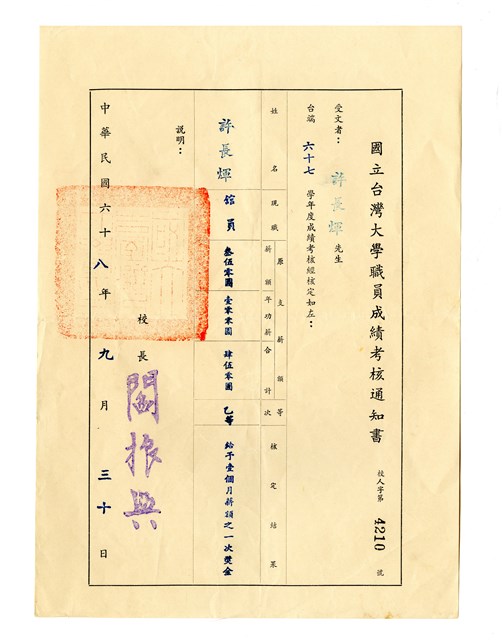 國立台灣大學職員成績考核通知書
校人字第 4210 號
受文者：許長輝 先生
台端 六十七 學年度成績考核經核定如左：
姓名
現職
原支薪額
薪額
年功薪
合計
等次
核定結果
許長輝
館員
叁伍零圓
壹零零圓
肆伍零圓
乙等
給予壹個月薪額之一次獎金
說明：
校長 閻振興
中華民國六十八年九月三十日